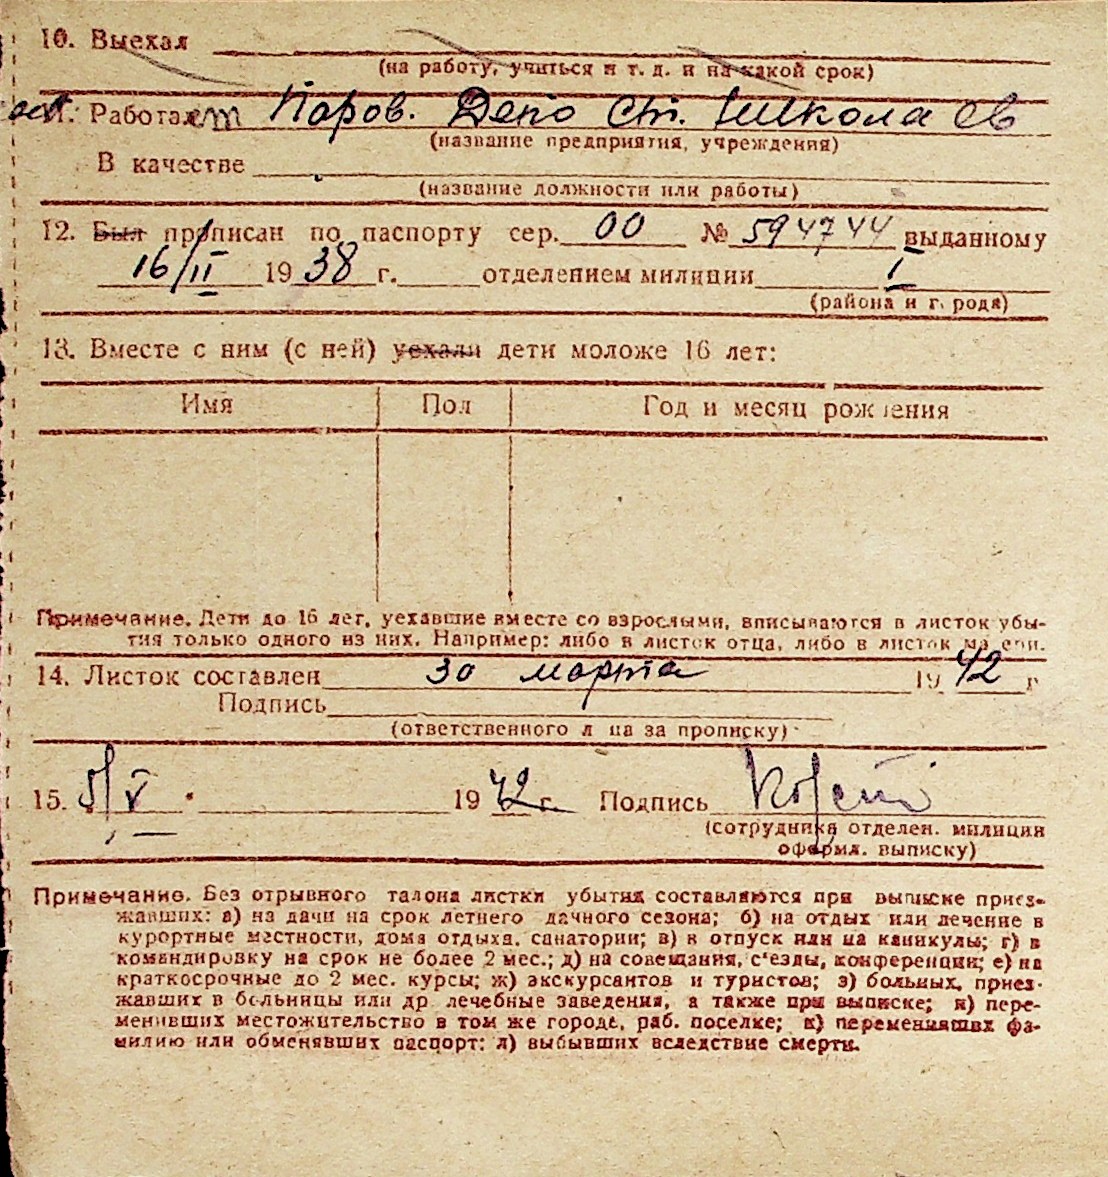 10. Выехал
(на работу, учиться и т. д. и на какой срок)
11. Работает Паров. Депо ст. Николаев
(название предприятия, учреждения)
В качестве
(название должности или работы)
12. Был прописан по паспорту сер. 00 № 594744 выданному
16/II 1938 г. отделением милиции I
(района и г. рода)
13. Вместе с ним (с ней) уехали дети моложе 16 лет:
Имя Пол Год и месяц рождения
Примечание. Дети до 16 лет, уехавшие вместе со взрослыми, вписываются в листок убы-
тия только одного из них. Например: либо в листок отца, либо в листок матери.
14. Листок составлен 30 марта 1942 г
Подпись
(ответственного лица за прописку)
15. 5/V 1942 г. Подпись
(сотрудника отделен. милиции
оформл. выписку)
Примечание. Без отрывного талона листки убытия составляются при выписке приез-
жавших: а) на дачи на срок летнего дачного сезона; б) на отдых или лечение в
курортные местности, дома отдыха, санатории; в) в отпуск или на каникулы; г) в
командировку на срок не более 2 мес.; д) на совещания, с'езды, конференции; е) на
краткосрочные до 2 мес. курсы; ж) экскурсантов и туристов; з) больных, приез-
жавших в больницы или др лечебные заведения, а также при выписке; и) пере-
менивших местожительство в том же городе, раб. поселке; к) переменивших фа-
милию или обменявших паспорт; л) выбывших вследствие смерти.